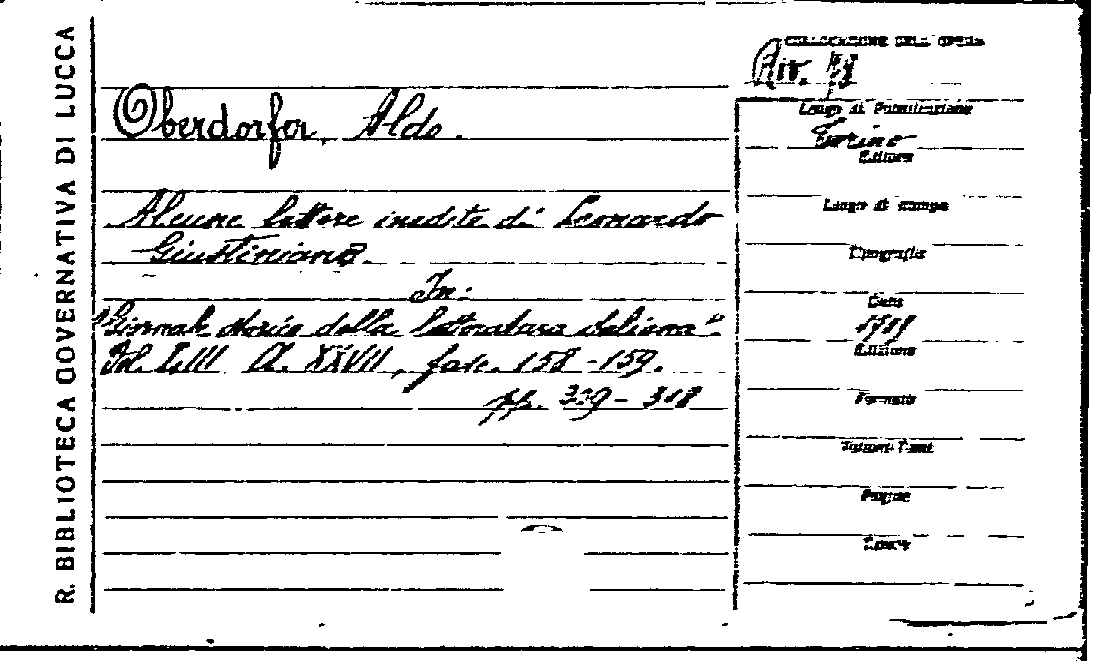 R. BIBLIOTECA GOVERNATIVA DI LUCCA
Oberdorfer, Aldo.
Alcune lettere inedite di Leonardo
Giustiniano.
In:
"Giornale storico della letteratura italiana".
Vol. LIII A. XXVII, fasc. 158-159.
pp.
COLLOCAZIONE DELL'OPERA
Riv.
Luogo di Pubblicazione
Torino
Editore
Luogo di stampa
Tipografia
Data
Edizione
Formato
Volumi-Tomi
Pagine